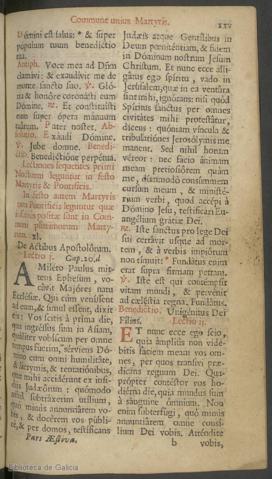 Commune unius Martyris.
xxv
Dómini est salus: * & super
pópulum tuum benedíctio
tua.
Antiph. Voce mea ad Dñm
clamávi: & exaudívit me de
monte sancto suo. ℣. Gló-
ria & honóre coronásti eum
Dómine, ℟. Et constituísti
eum super ópera mánuum
tuárum. Pater noster. Ab-
solutio. Exáudi Dómine.
℣. Jube domne. Benedí-
ctio. Benedictióne perpétua.
Lectiones sequentes primi
Nocturni leguntur in festo
Martyris & Pontificis.
In festo autem Martyris
non Pontificis leguntur quæ
infra positæ sunt in Com-
muni plurimorum Marty-
rum
De Actibus Apostolórum.
Lectio j. Cap. 20. d
A Miléto Paulus mit-
tens Ephesum, vo-
cávit Majóres natu
Ecclésiæ. Qui cùm venissent
ad eum, & simul essent, dixit
eis: Vos scitis à prima die,
qua ingréssus sum in Asiam,
quáliter vobíscum per omne
tempus fúerim, sérviens Dó-
mino cum omni humilitáte,
& lácrymis, & tentatiónibus,
quæ mihi accidérunt ex insí-
diis Judæórum: quómodo
nihil subtráxerim utílium,
quò minùs annuntiárem vo-
bis, & docérem vos públi-
cè, & per domos, testíficans
Pars Æstiva.
Judæis atque Gentílibus in
Deum pœniténtiam, & fidem
in Dóminum nostrum Jesum
Christum. Et nunc ecce alli-
gátus ego spíritu, vado in
Jerúsalem, quæ in ea ventúra
sunt mihi, ignórans: nisi quòd
Spíritus sanctus per omnes
civitátes mihi protestátur,
dicens: quóniam víncula &
tribulatiónes Jerosólymis me
manent. Sed nihil horum
véreor: nec fácio ánimam
meam pretiosiórem quàm
me, dúmmodo consúmmem
cursum meum, & ministé-
rium verbi, quod accépi à
Dómino Jesu, testificári Eu-
angélium grátiæ Dei.
℟. Iste sanctus pro lege Dei
sui certávit usque ad mor-
tem, & à verbis impiórum
non tímuit: * Fundátus enim
erat supra firmam petram.
℣. Iste est qui contémpsit
vitam mundi, & pervénit
ad cæléstia regna. Fundátus.
Benedictio. Unigénitus Dei
Fílius. Lectio ij.
ET nunc ecce ego scio,
quia ámplius non vidé-
bitis fáciem meam vos om-
nes, per quos transívi præ-
dicans regnum Dei. Qua-
própter contéstor vos ho-
diérna die, quia mundus sum
à sánguine ómnium. Non
enim subterfúgi, quò minùs
annuntiárem omne consí-
lium Dei vobis. Atténdite
b vobis,
Biblioteca de Galicia